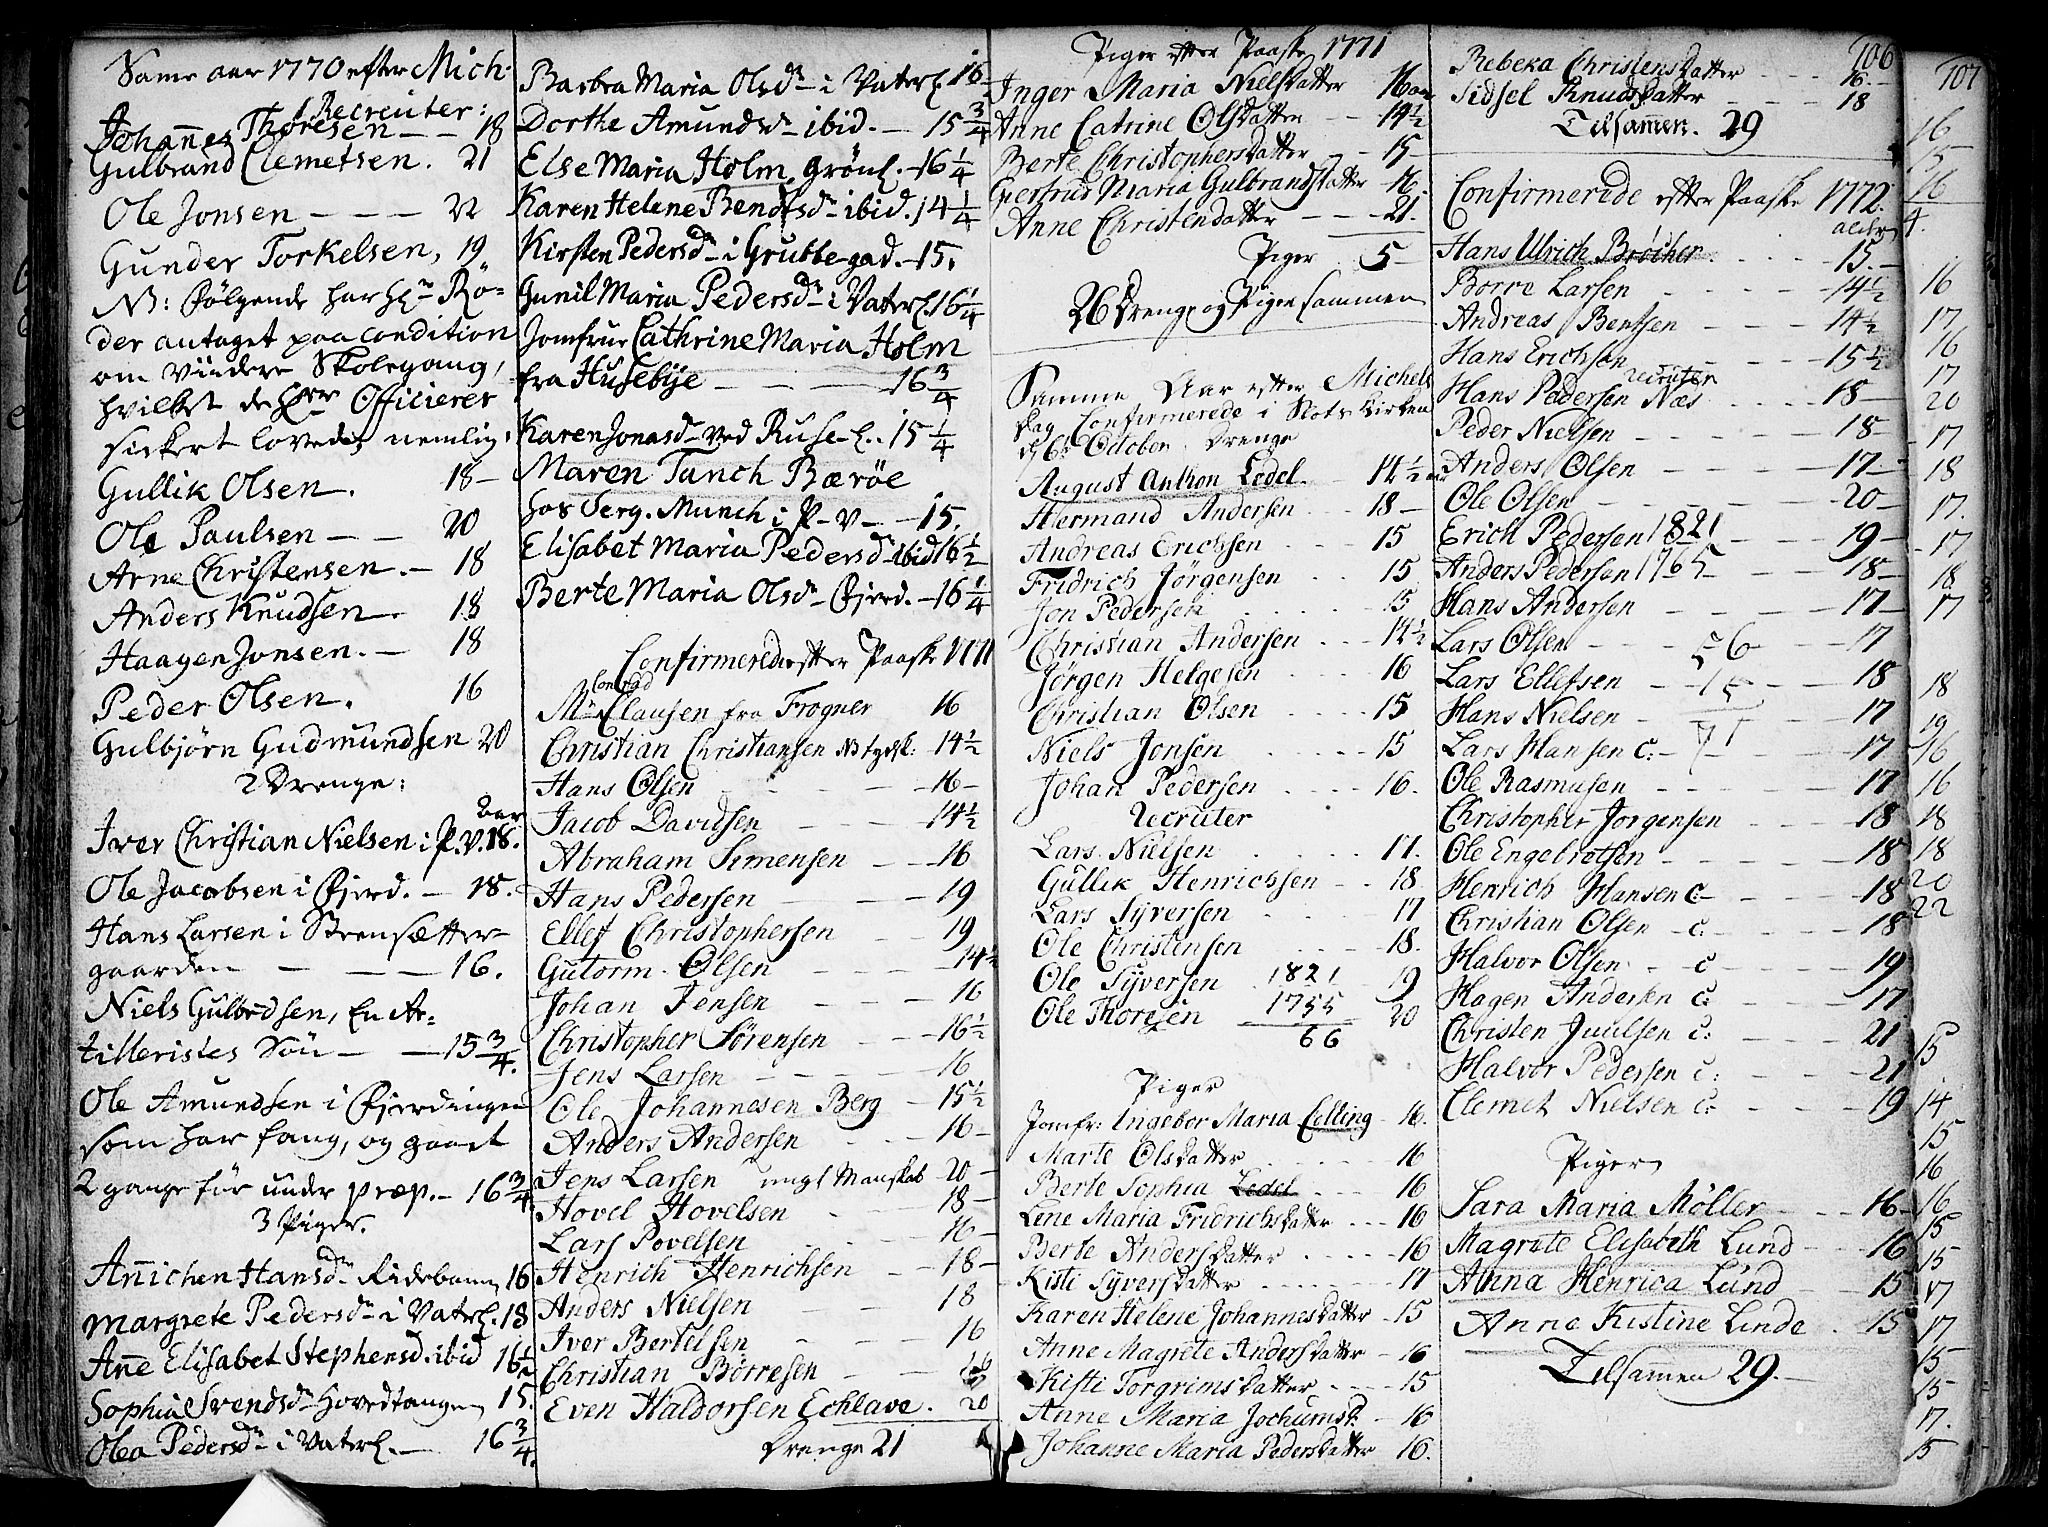 Same aar 1770 efter Mich:
1 Recreuter:
Johannes Thoresen — — 18
Gulbrand Clemetsen. 21
Ole Jonsen — — — 22
Gunder Torkelsen, 19
NB: følgende har Hr Rö=
der antaget paa condition
om viidere Skolegang,
hvilket de Herr Officierer
sickert lovede, nemlig:
Gullik Olsen. 18 —
Ole Paulsen — — 20
Arne Christensen. — 18
Anders Knudsen — 18
Haagen Jonsen. — 18
Peder Olsen. 16
Gulbjörn Gudmundsen 20
2 Drenge:
aar
Iver Christian Nielsen i P.V. 18.
Ole Jacobsen i Fjerd. — 18.
Hans Larsen i Strensætter-
gaarden — — — 16.
Niels Gulbrdsen, En Ar=
tilleristes Sön — — 15 3/4.
Ole Amundsen i Fjerdingen
som har fang, og gaaet
2 gange för under præp. — 16 3/4.
3 Piger.
Anichen Hansdr Ridebanen 16
Margrete Pedersdr i Vaterl. 18
Anne Elisabet Stephensd. ibid 16 1/2
Sophia Svendsdr Hovedtangen 15.
Olea Pedersdr i Vaterl. — 16 3/4.
Barbra Maria Olsdr i Vaterl. 16
Dorthe Amundsdr ibid. — 15 3/4
Else Maria Holm, Grönl. — 16 1/4
Karen Helene Bendtsdr ibid. 14 1/4
Kirsten Pedersdr i Grubbegad. — 15.
Gunil Maria Pedersdr i Vaterl. 16 1/4
Jomfrue Cathrine Maria Holm
fra Husebye — — — 16 3/4
Karen Jonasdr ved Ruse-l. 15 1/4
Maren Tanch Bæröe
hos Serg. Munch i P-V — 15.
Elisabet Maria Pedersdr ibid 16 1/2
Berte Maria Olsdr Fjerd. — 16 1/4
Confirmerede efter Paaske 1771
Conrad
Mr Clausen fra Frogner 16
Christian Christiansen NB tydsk: 14 1/2
Hans Olsen — 16 —
Jacob Davidsen — — 14 1/2
Abraham Simensen — — 16
Hans Pedersen — — 19
Ellef Christophersen — — 19
Gutorm Olsen — 14 1/2
Johan Jensen — — 16
Christopher Sörensen — — 16 1/2
Jens Larsen — — — 16
Ole Johannesen Berg — 15 1/2
Anders Andersen — — 16 —
Jens Larsen ungt Manskab 20 —
Hovel Hovelsen — 18 —
Lars Povelsen — 16 —
Henrich Henrichsen — — 18 —
Anders Nielsen — — 18
Iver Bertelsen — — 16
Christian Börresen — — 16
Even Haldorsen Echlave. 20
Drenge 21
Piger efter Paaske 1771
Inger Maria Nielsdatter 16 aar
Anne Catrine Olsdatter — — 14 1/2
Berte Christophersdatter — 15 —
Gertrud Maria Gulbrandsdatter — 16.
Anne Christensdatter — — — 21.
Piger 5 —
26 Drenge og Piger sammen
Samme Aar efter Michels
dag Confirmerede i Slots Kirken
d. 6t October. Drenge
August Anthon Ledel. — 14 1/2 aar
Hermand Andersen — 18 —
Andreas Erichsen 15
Fridrich Jörgensen 15
Jon Pedersen 15
Christian Andersen 14 1/2
Jörgen Helgesen 16
Christian Olsen 15
Niels Jonsen 15
Johan Pedersen 16.
Recruter
Lars Nielsen 17.
Gullik Henrichsen — 18
Lars Syversen 17
Ole Christensen 18.
Ole Syversen 1821 19
Ole Thoresen 1755 20
66
Piger
Jomfr: Ingebor Maria Colling — 16.
Marte Olsdatter — 16
Berte Sophia Ledel — 16
Lene Maria Fridrichsdatter — 16
Berte Andersdatter — 16
Kisti Syversdatter — 17
Karen Helene Johannesdatter — 15
Anne Magrete Andersdatter — 16
Kisti Torgrimsdatter — 15
Anne Maria Jochumsd. — 16
Johanne Maria Pedersdatter 16.
106
Rebeka Christensdatter — — 16 —
Sidsel Knudsdatter — — 18
Tilsamen. 29
Confirmerede efter Paaske 1772.
alder
Hans Ulrich Bröcher 15. —
Borre Larsen — — 14 1/2
Andreas Bentsen — — — 14 1/2
Hans Erichsen — — 15 1/2
recruter
Hans Pedersen Næs 18 —
Peder Nielsen — — — 18 —
Anders Olsen — — — 17 —
Ole Olsen — — — 20 —
Erich Pedersen 1821 — — 19 —
Anders Pedersen 1765 — — 18 —
Hans Andersen — — — 17 —
Lars Olsen — — 56 — 17
Lars Ellefsen — 15 — 18
Hans Nielsen — 71 17
Lars Hansen C: — — 17
Ole Rasmusen — — — 17
Christopher Jorgensen — — 18
Ole Engebretsen — — — 18
Henrich Hansen C — 18
Christian Olsen — C. — 18
Halvor Olsen — C — — 19
Hagen Andersen C: — 17
Christen Juulsen C: — — 21
Halvor Pedersen C: — — 21
Clemet Nielsen C: — — 19
Piger
Sara Maria Möller — — 16 —
Magrete Elisabeth Lund — 16
Anna Henrica Lund — 15
Anne Kistine Linde . 15
Tilsamen 29. —
107
16
15
16
4.
16
17
16
17
20
17
18
17.
17
18
17
18
19
16
16
18
18
20
22
15
14
15
16
16
15
15
17
17
15
15
17.
15